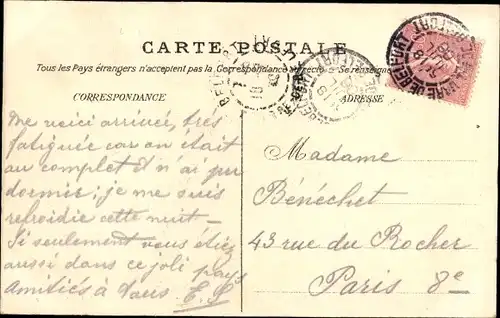 CARTE POSTALE
Tous les Pays étrangers n'acceptent pas la Correspondance au recto
CORRESPONDANCE
ADRESSE
Me voici arrivée, très
fatiguée car on était
au complet et n'ai pu
dormir; je me suis
refroidie cette nuit —
Si seulement vous étiez
aussi dans ce joli pays
Amitiés à Vous E. L
Madame
Bénéchet
43 rue du Rocher
Paris 8e